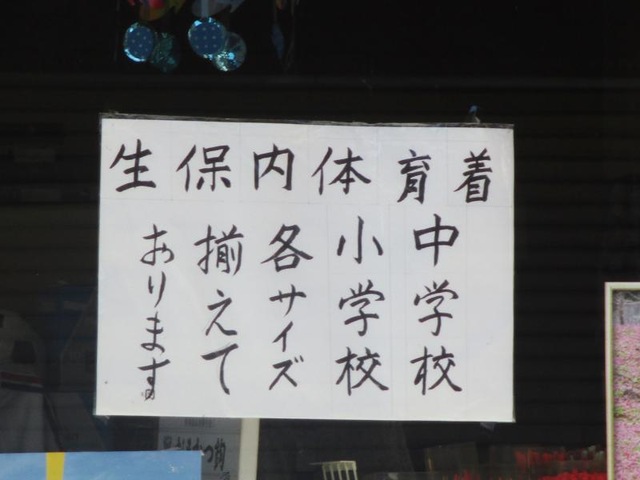 生保内体育着
中学校
小学校
各サイズ
揃えて
あります